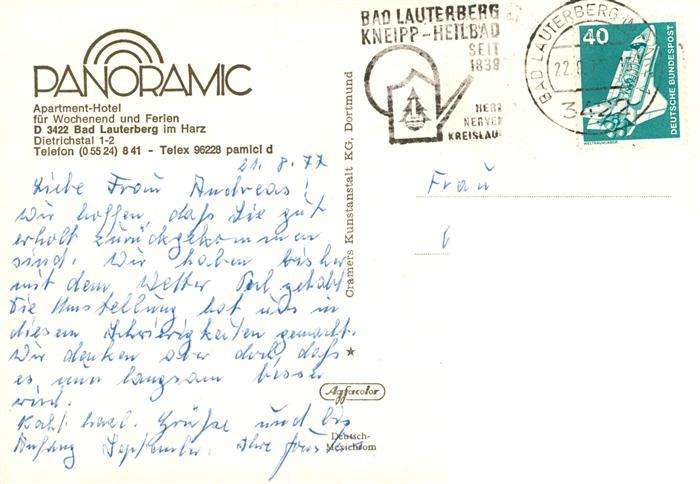 PANORAMIC
Apartment-Hotel
für Wochenend und Ferien
D 3422 Bad Lauterberg im Harz
Dietrichstal 1-2
Telefon (0 55 24) 8 41 - Telex 96228 pamicl d
21. 8. 77
Liebe Frau Andreas!
Wir hoffen, daß Sie gut
erholt zurückgekommen
sind. Wir haben bisher
mit dem Wetter Pech gehabt.
Die Umstellung hat uns in
diesem Schwierigkeiten gemacht.
Wir denken aber doch, daß
es nun langsam besser
wird.
herzl. Grüße und bis
Anfang September. Ihre
Cramers Kunstanstalt KG, Dortmund
★
Agfacolor
Deutsch-
Mexichrom
BAD LAUTERBERG
KNEIPP-HEILBAD
SEIT
1839
HERZ
NERVEN
KREISLAU
BAD LAUTERBERG IM
22.8.77
3422
40
DEUTSCHE BUNDESPOST
WELTRAUMLABOR
Frau